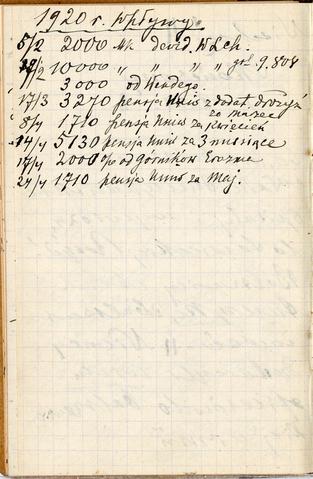 1920 r. Wpływy:
5/2 2000 Mk. dewid. W.Lch.
10000 " " " " 9.808
3000 od
17/3 3270 pensja Uniw z dodat. drożyź
za marzec
8/4 1710 pensja Uniw za kwiecień
14/4 5130 pensja Uniw za 3 miesiące
17/4 2000 od górników Erazma
24/4 1710 pensja Uniw za Maj.